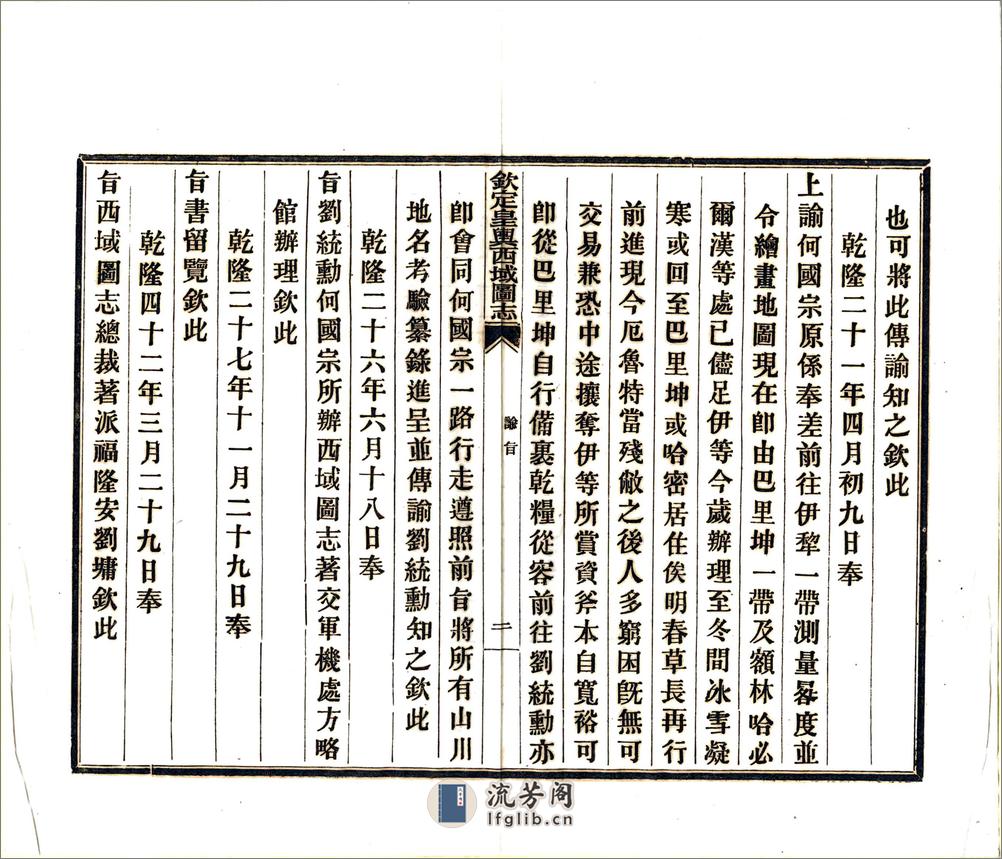 也可將此傳諭知之欽此
乾隆二十一年四月初九日奉
上諭何國宗原係奉差前往伊犂一帶測量晷度並
令繪畫地圖現在卽由巴里坤一帶及額林哈必
爾漢等處已儘足伊等今歲辦理至冬間冰雪凝
寒或回至巴里坤或哈密居住俟明春草長再行
前進現今厄魯特當殘敝之後人多窮困旣無可
交易兼恐中途攘奪伊等所賞資斧本自寬裕可
卽從巴里坤自行備裹乾糧從容前往劉統勳亦
欽定皇輿西域圖志
諭旨
二
卽會同何國宗一路行走遵照前旨將所有山川
地名考驗纂錄進呈並傳諭劉統勳知之欽此
乾隆二十六年六月十八日奉
旨劉統勳何國宗所辦西域圖志著交軍機處方略
館辦理欽此
乾隆二十七年十一月二十九日奉
旨書留覽欽此
乾隆四十二年三月二十九日奉
旨西域圖志總裁著派福隆安劉墉欽此
流芳阁
lfglib.cn